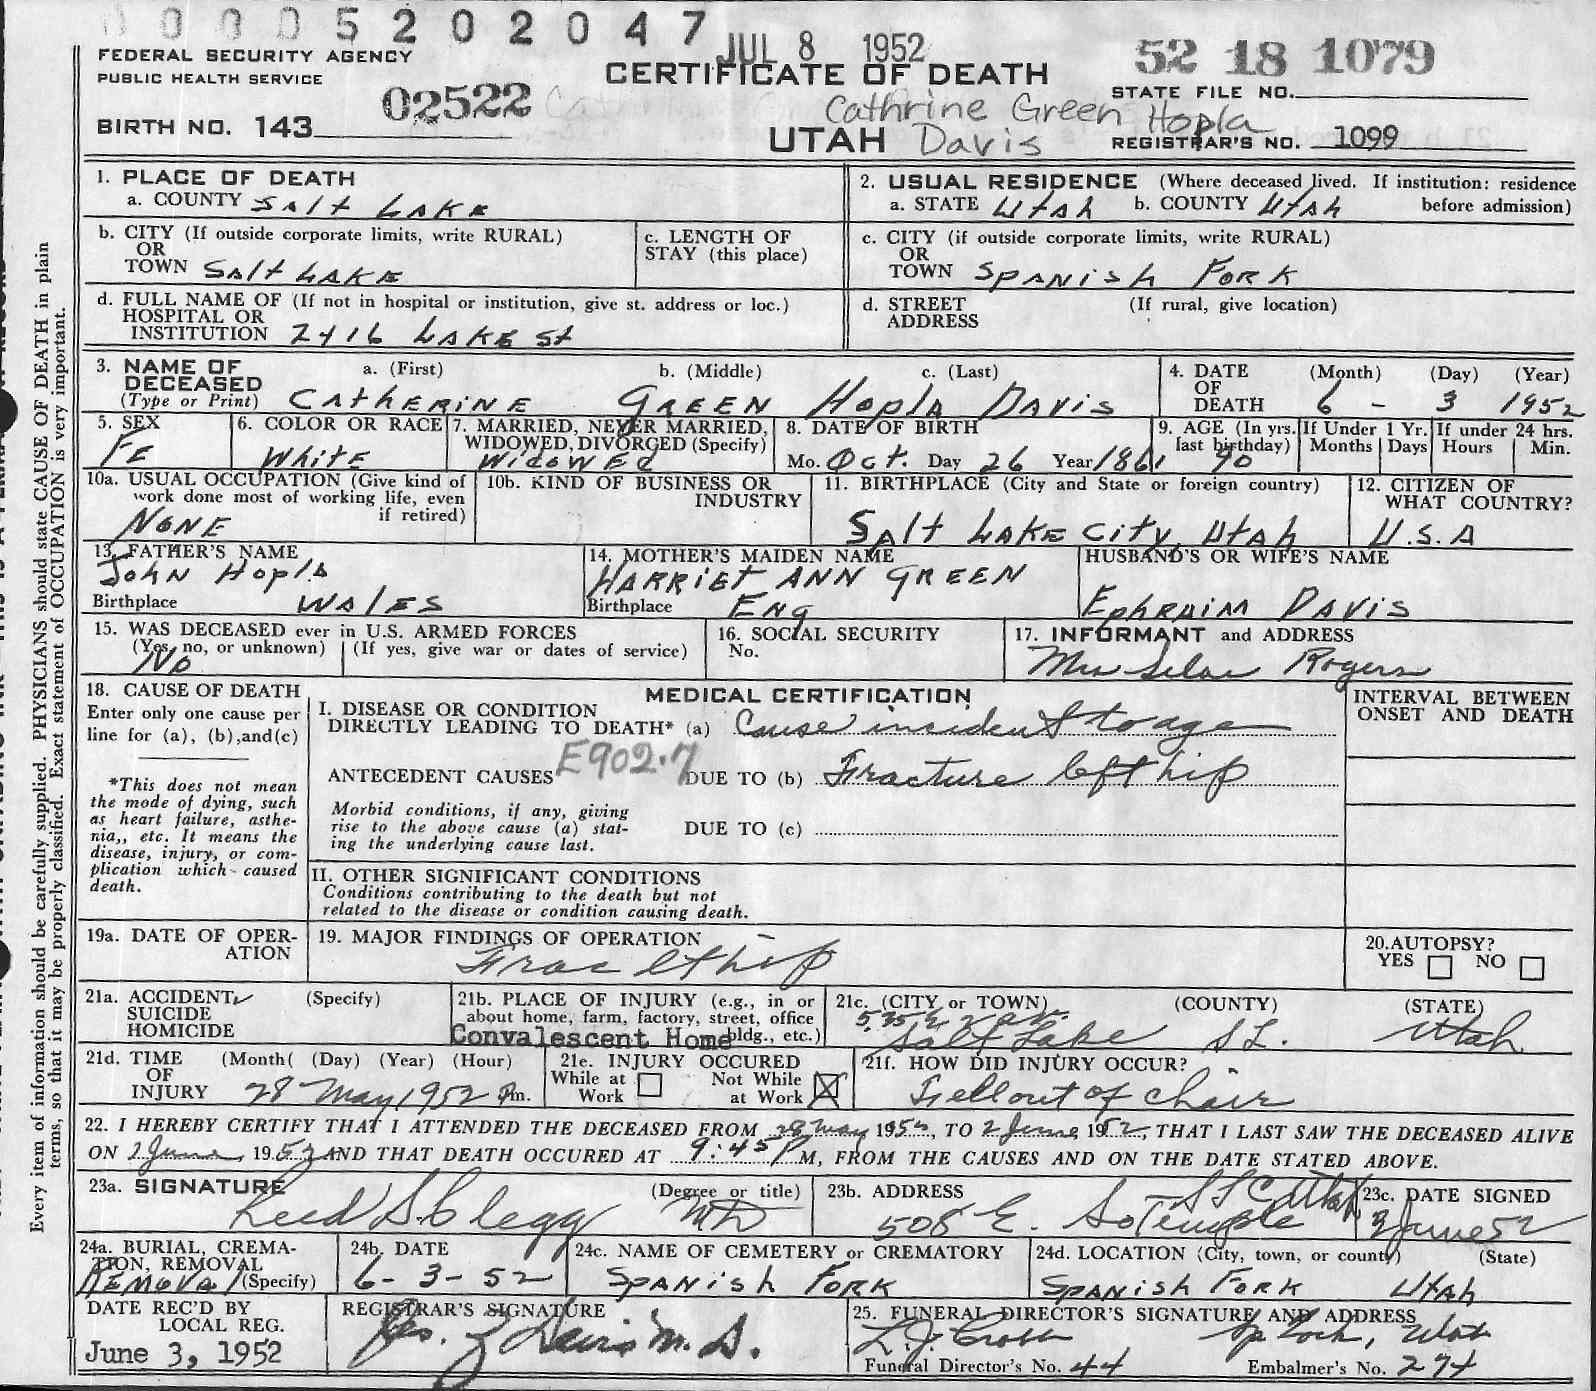 0005202047 JUL 8 1952
FEDERAL SECURITY AGENCY
PUBLIC HEALTH SERVICE
02522
CERTIFICATE OF DEATH
52 18 1079
STATE FILE NO.
Cathrine Green Hopla
BIRTH NO. 143
UTAH Davis
REGISTRAR'S NO. 1099
Every item of information should be carefully supplied. PHYSICIANS should state CAUSE OF DEATH in plain
terms, so that it may be properly classified. Exact statement of OCCUPATION is very important.
1. PLACE OF DEATH
a. COUNTY Salt Lake
2. USUAL RESIDENCE (Where deceased lived. If institution: residence
before admission)
a. STATE Utah b. COUNTY Utah
b. CITY (If outside corporate limits, write RURAL)
OR
TOWN Salt Lake
c. LENGTH OF
STAY (this place)
c. CITY (if outside corporate limits, write RURAL)
OR
TOWN Spanish Fork
d. FULL NAME OF (If not in hospital or institution, give st. address or loc.)
HOSPITAL OR
INSTITUTION 2416 Lake St
d. STREET (If rural, give location)
ADDRESS
3. NAME OF
DECEASED
(Type or Print)
a. (First) b. (Middle) c. (Last)
Catherine Green Hopla Davis
4. DATE
OF
DEATH
(Month) (Day) (Year)
6 - 3 1952
5. SEX
Fe
6. COLOR OR RACE
White
7. MARRIED, NEVER MARRIED,
WIDOWED, DIVORCED (Specify)
Widowed
8. DATE OF BIRTH
Mo. Oct. Day 26 Year 1861
9. AGE (In yrs.
last birthday)
90
If Under 1 Yr.
Months Days
If under 24 hrs.
Hours Min.
10a. USUAL OCCUPATION (Give kind of
work done most of working life, even
if retired)
None
10b. KIND OF BUSINESS OR
INDUSTRY
11. BIRTHPLACE (City and State or foreign country)
Salt Lake City, Utah
12. CITIZEN OF
WHAT COUNTRY?
U.S.A
13. FATHER'S NAME
John Hopla
Birthplace Wales
14. MOTHER'S MAIDEN NAME
Harriet Ann Green
Birthplace Eng
HUSBAND'S OR WIFE'S NAME
Ephraim Davis
15. WAS DECEASED ever in U.S. ARMED FORCES
(Yes, no, or unknown) (If yes, give war or dates of service)
No
16. SOCIAL SECURITY
No.
17. INFORMANT and ADDRESS
Mrs Rogers
18. CAUSE OF DEATH
Enter only one cause per
line for (a), (b),and(c)
*This does not mean
the mode of dying, such
as heart failure, asthe-
nia,, etc. It means the
disease, injury, or com-
plication which caused
death.
MEDICAL CERTIFICATION
I. DISEASE OR CONDITION
DIRECTLY LEADING TO DEATH* (a) Cause incident to age
ANTECEDENT CAUSES E902.7 DUE TO (b) Fracture left hip
Morbid conditions, if any, giving
rise to the above cause (a) stat-
ing the underlying cause last.
DUE TO (c)
II. OTHER SIGNIFICANT CONDITIONS
Conditions contributing to the death but not
related to the disease or condition causing death.
INTERVAL BETWEEN
ONSET AND DEATH
19a. DATE OF OPER-
ATION
19. MAJOR FINDINGS OF OPERATION
Frac lt hip
20.AUTOPSY?
YES NO
21a. ACCIDENT (Specify)
SUICIDE
HOMICIDE
21b. PLACE OF INJURY (e.g., in or
about home, farm, factory, street, office
bldg., etc.)
Convalescent Home
21c. (CITY or TOWN) (COUNTY) (STATE)
Salt Lake S L. Utah
21d. TIME (Month( (Day) (Year) (Hour)
OF
INJURY 28 May 1952 Pm.
21e. INJURY OCCURED
While at
Work
Not While
at Work
21f. HOW DID INJURY OCCUR?
Fell out of chair
22. I HEREBY CERTIFY THAT I ATTENDED THE DECEASED FROM 28 May 1952, TO 2 June 1952, THAT I LAST SAW THE DECEASED ALIVE
ON 2 June 1952 AND THAT DEATH OCCURED AT 9:45 P M, FROM THE CAUSES AND ON THE DATE STATED ABOVE.
23a. SIGNATURE (Degree or title)
Reed S. Clegg MD
23b. ADDRESS
508 E. So Temple SLC Utah
23c. DATE SIGNED
3 June 52
24a. BURIAL, CREMA-
TION, REMOVAL
Removal (Specify)
24b. DATE
6-3-52
24c. NAME OF CEMETERY or CREMATORY
Spanish Fork
24d. LOCATION (City, town, or county) (State)
Spanish Fork Utah
DATE REC'D BY
LOCAL REG.
June 3, 1952
REGISTRAR'S SIGNATURE
M. D.
25. FUNERAL DIRECTOR'S SIGNATURE AND ADDRESS
Sp Fork, Utah
Funeral Director's No. 44 Embalmer's No. 274